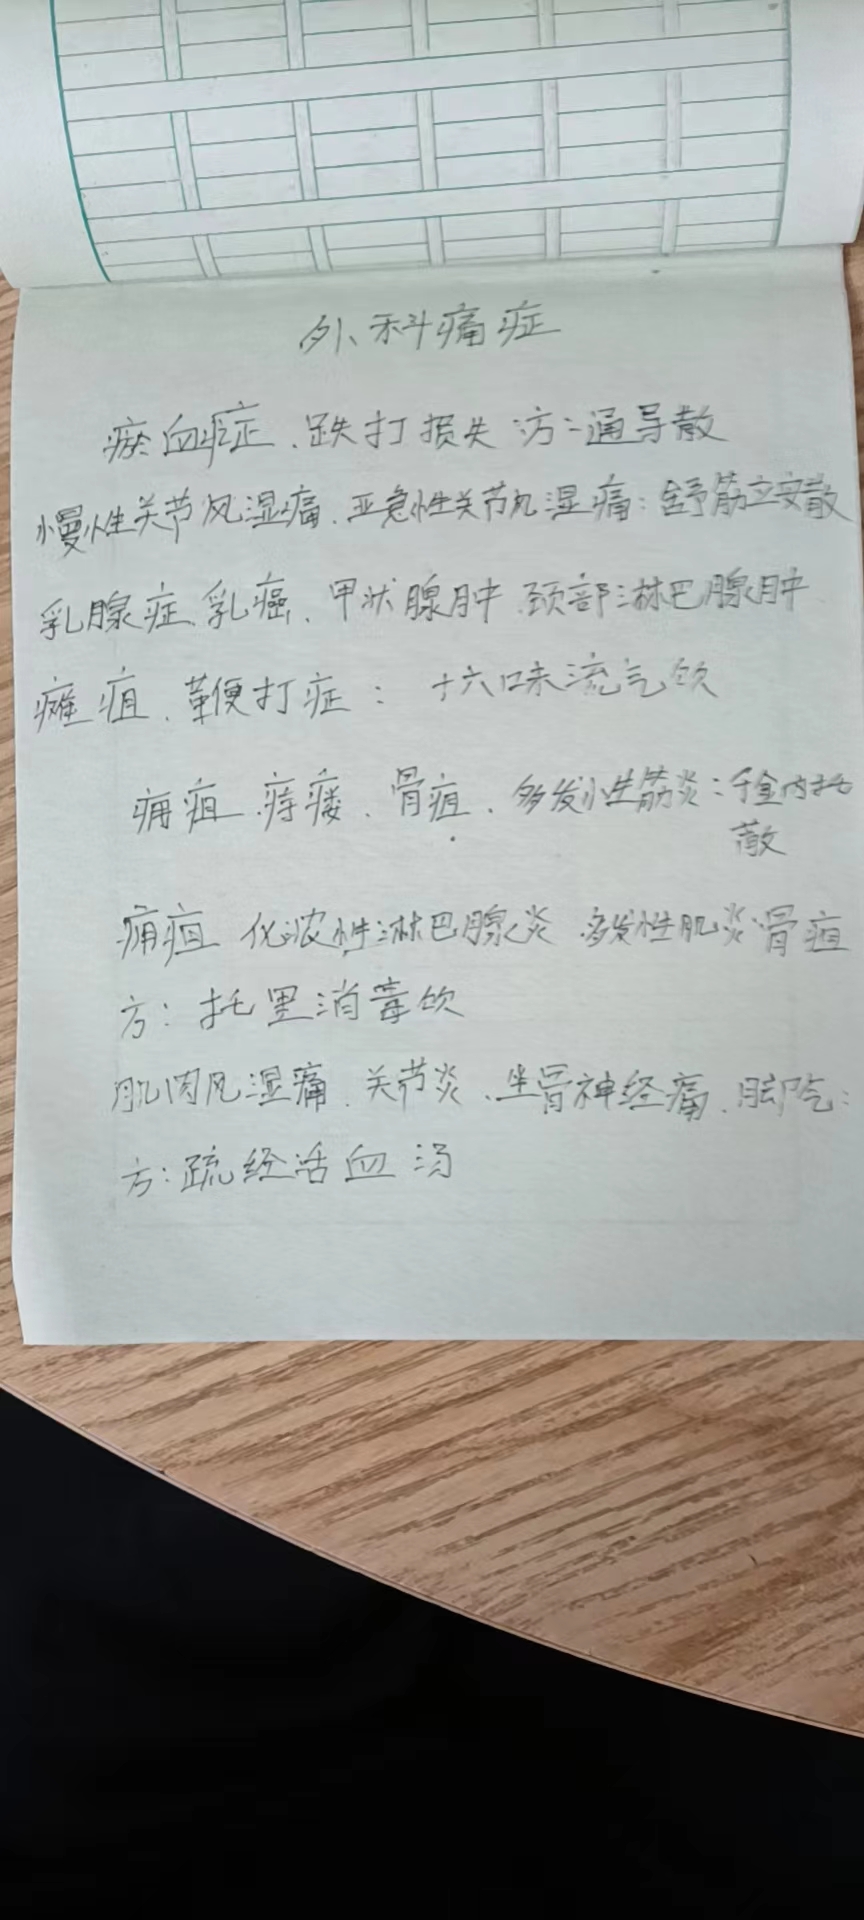 外科痛症
瘀血症、跌打损失 方:通导散
慢性关节风湿痛、亚急性关节风湿痛:舒筋立安散
乳腺症、乳癌、甲状腺肿、颈部淋巴腺肿
瘫疽、鞭打症: 十六味流气饮
痈疽、痔瘘、骨疽、多发性筋炎:千金内托
散
痈疽 化浓性淋巴腺炎 多发性肌炎 骨疽
方:托里消毒饮
肌肉风湿痛、关节炎、坐骨神经痛、脚气:
方:疏经活血汤